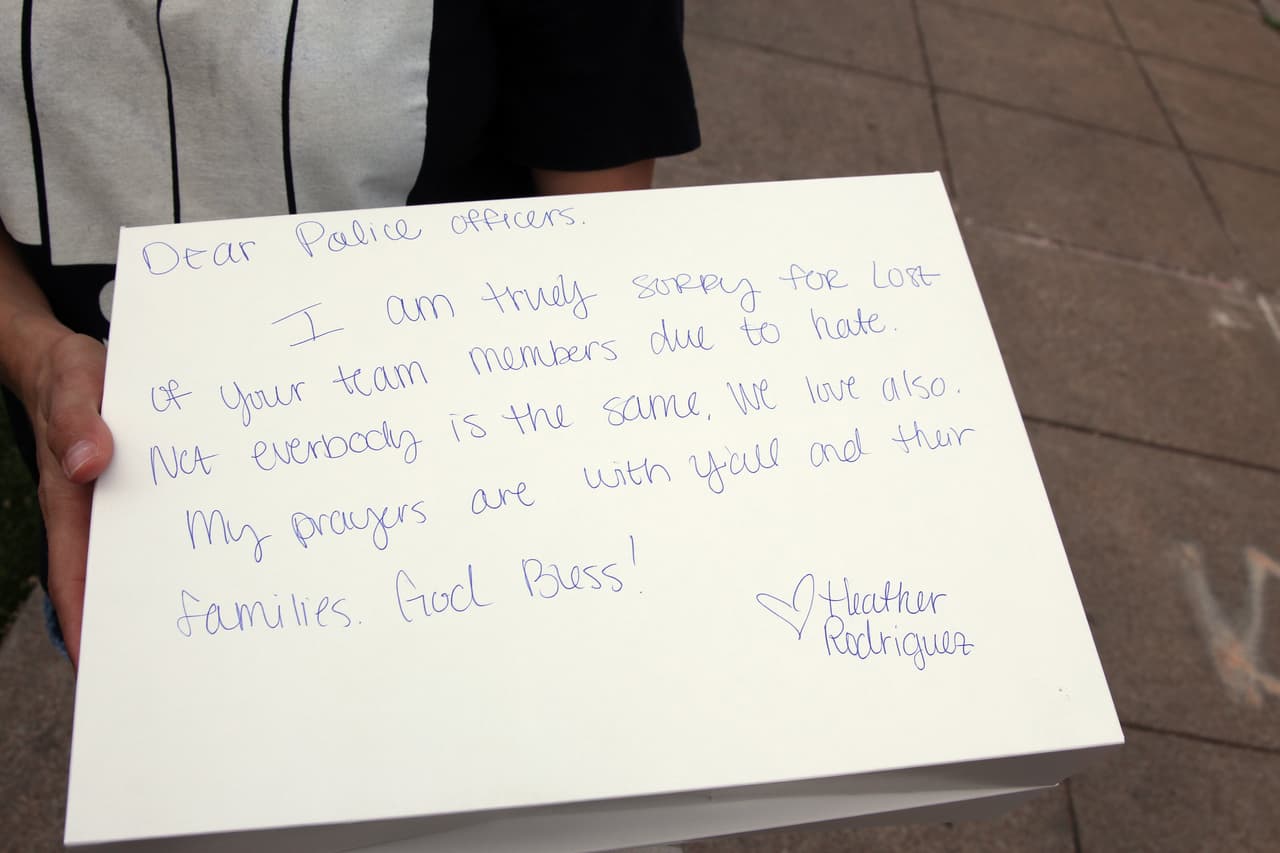 Dear Police officers.
I am truely sorry for Lost
of your team members due to hate.
Not everbody is the same. We love also.
My prayers are with y'all and their
families. God Bless!
♡ Heather
Rodriguez